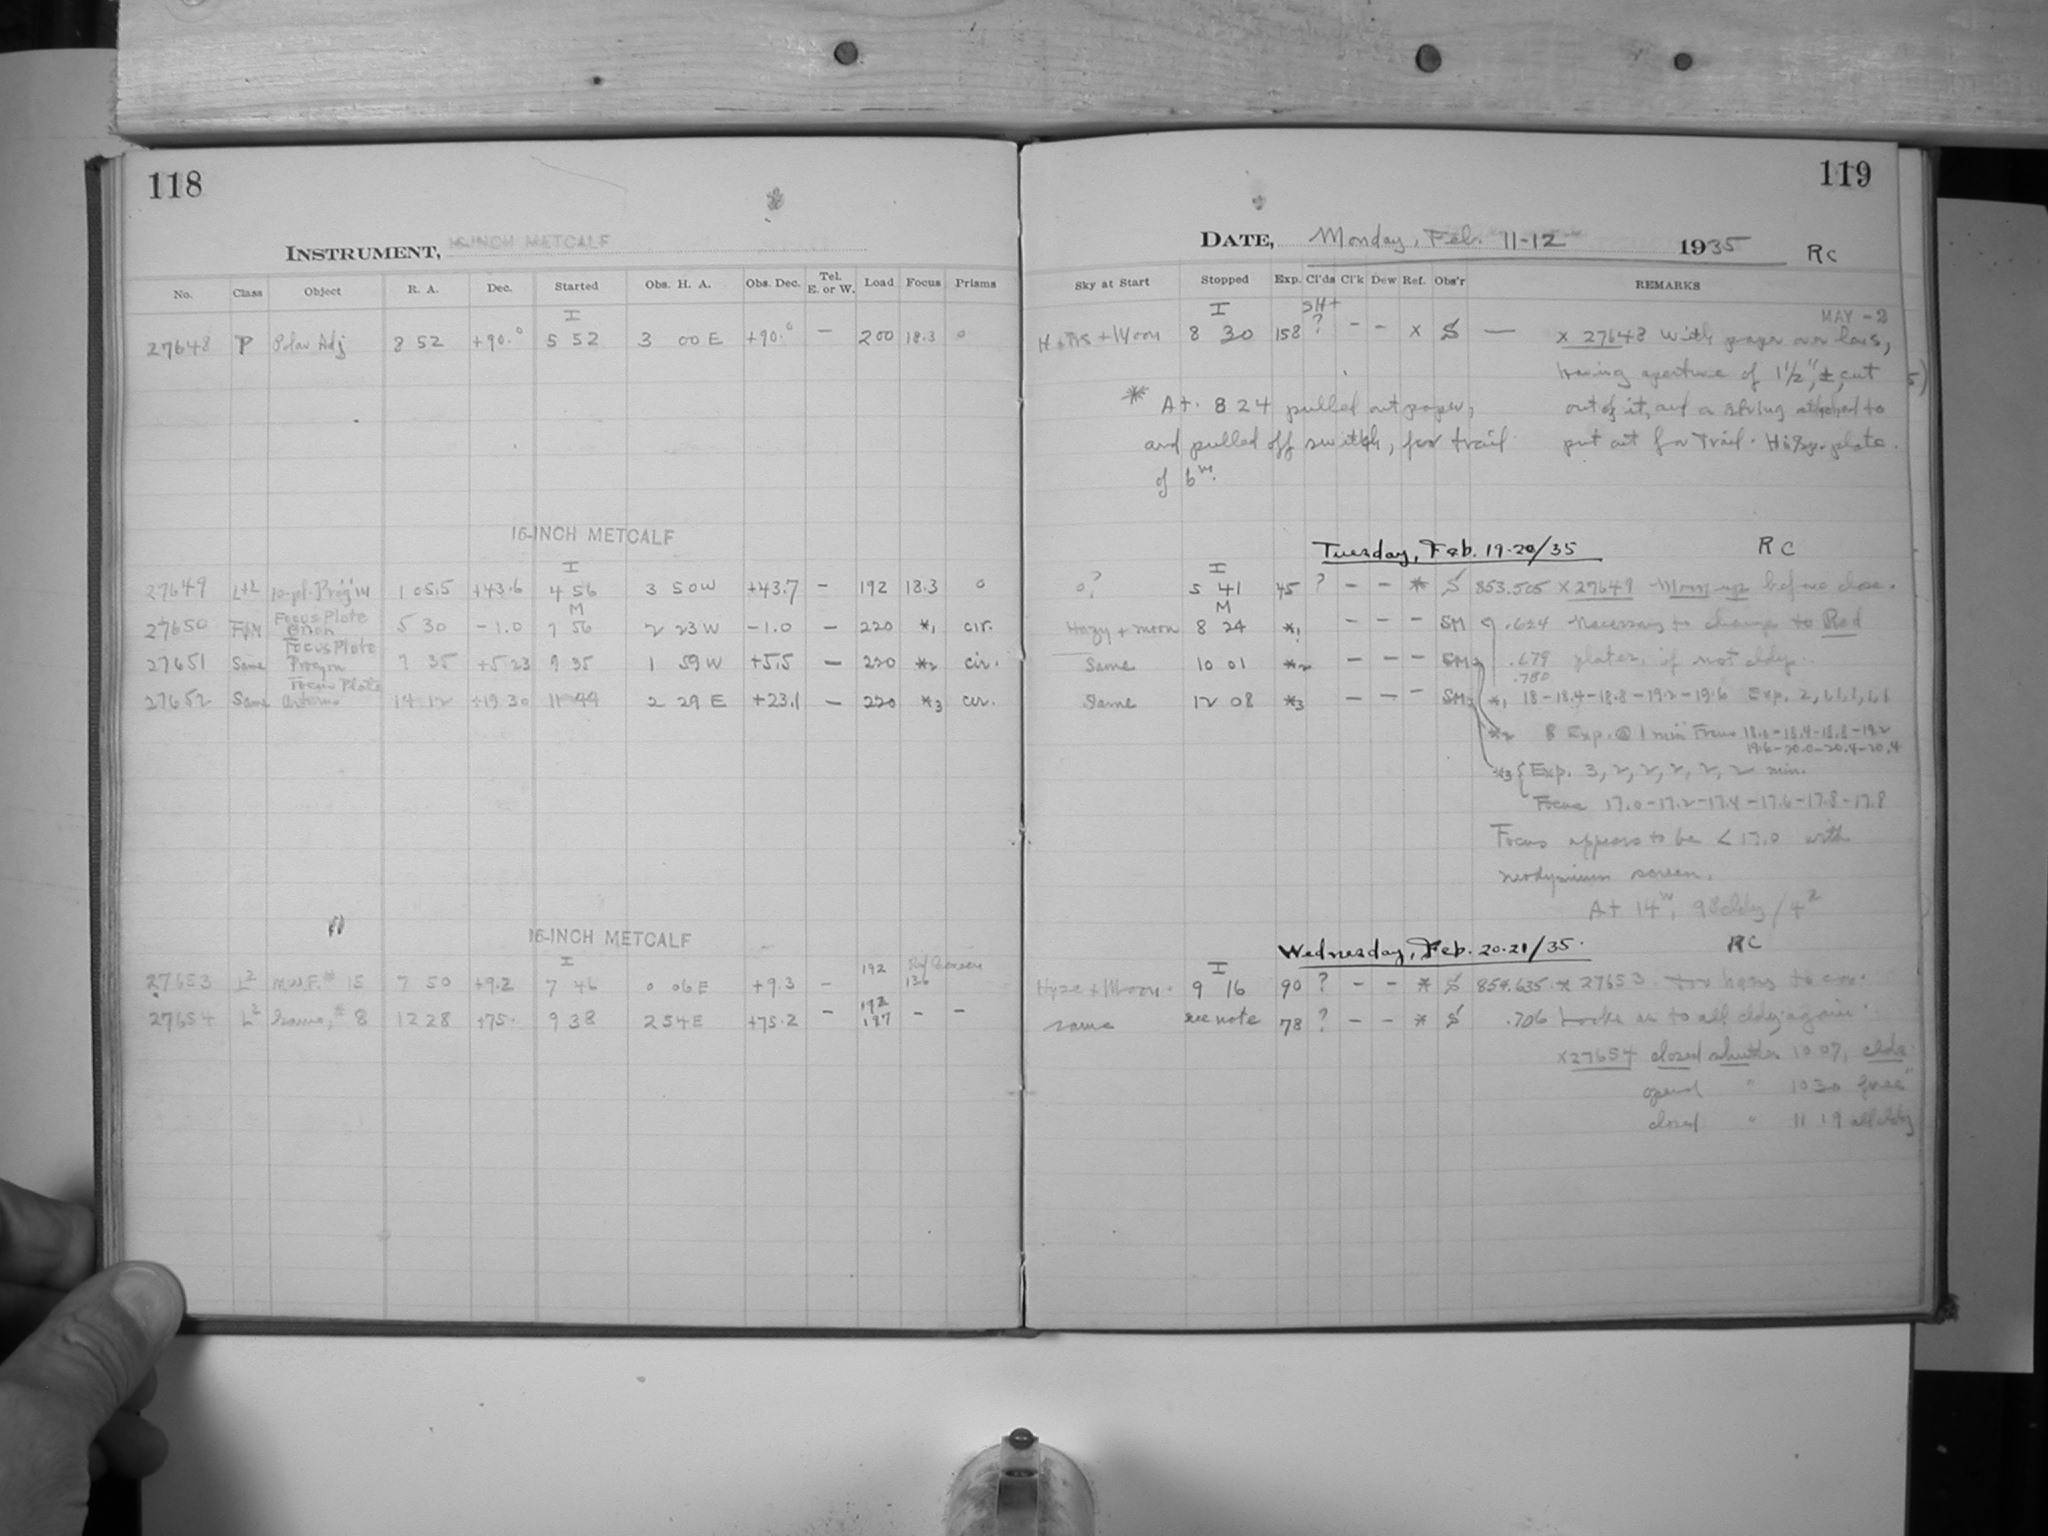 118
INSTRUMENT, 16-INCH METCALF
No. Class Object R. A. Dec. Started Obs. H. A. Obs. Dec. Tel. E. or W. Load Focus Prisms
I
27648 P Polar Adj 8 52 +90.° 5 52 3 00 E +90.° — 200 18.3 0
16-INCH METCALF
I
27649 10-pl. 1 05.5 +43.6 4 56 3 50 W +43.7 — 192 18.3 0
M
27650 Focus Plate Orion 5 30 -1.0 7 56 2 23 W -1.0 — 220 *1 cir.
27651 Same Focus Plate Procyon 7 35 +5.23 9 35 1 59 W +5.5 — 220 *2 cir.
27652 Same Focus Plate 14 12 +19 30 11 44 2 29 E +23.1 — 220 *3 cir.
16-INCH METCALF
I
27653 L² M.W.F.# 15 7 50 +9.2 7 46 0 06 E +9.3 — 192 Red Screen 13.6
27654 L² Same, # 8 12 28 +75. 9 38 2 54 E +75.2 — 192 187 — —
119
DATE, Monday, Feb. 11-12 1935 RC
Sky at Start Stopped Exp. Cl'ds Cl'k Dew Ref. Obs'r REMARKS
MAY -2
I SH+
+ Moon 8 30 158 ? — — x S — x 27648 with paper over lens,
having aperture of 1½", ±, cut
* At 8 24 pulled out paper, out of it, and a string attached to
and pulled off switch, for trail put out for Trail. plate.
of 6ᵐ.
Tuesday, Feb. 19-20/35 RC
I
0? 5 41 45 ? — — * S 853.505 x 27649 Moon up before close.
M
Hazy + moon 8 24 *1 — — — SM .624 Necessary to change to Red
Same 10 01 *2 — — — SM .679 plates, if not cldy.
.780
Same 12 08 *3 — — — SM *1 18-18.4-18.8-19.2-19.6 Exp. 2, 1, 1, 1, 1
*2 8 Exp. @ 1 min Focus 18.0-18.4-18.8-19.2
19.6-20.0-20.4-20.4
*3 { Exp. 3, 2, 2, 2, 2, 2 min.
Focus 17.0-17.2-17.4-17.6-17.8-17.8
Focus appears to be < 17.0 with
neodymium screen.
At 14
Wednesday, Feb. 20-21/35. RC
I
Haze + Moon. 9 16 90 ? — — * S 859.635 x 27653 too hazy to
same see note 78 ? — — * S .706 Looks as to all cldy again.
x 27654 closed shutter 10 07, clds.
opened " 10 30 free "
closed " 11 19 all cldy